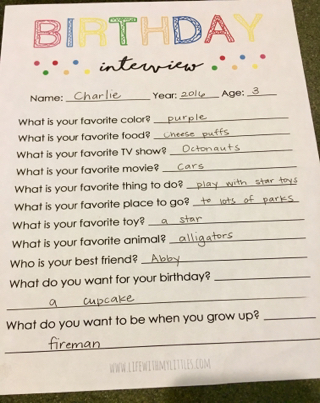 BIRTHDAY
interview
Name: Charlie Year: 2016 Age: 3
What is your favorite color? purple
What is your favorite food? cheese puffs
What is your favorite TV show? Octonauts
What is your favorite movie? Cars
What is your favorite thing to do? play with star toys
What is your favorite place to go? to lots of parks
What is your favorite toy? a star
What is your favorite animal? alligators
Who is your best friend? Abby
What do you want for your birthday?
a cupcake
What do you want to be when you grow up?
fireman
WWW.LIFEWITHMYLITTLES.COM